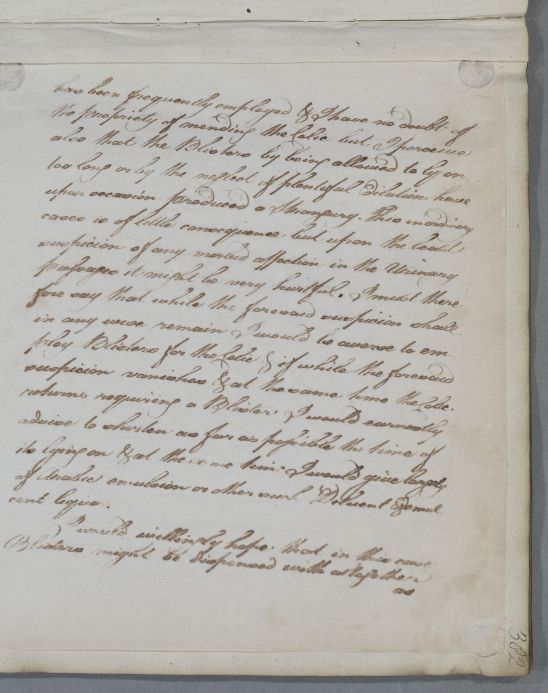 have been frequently employed & I have no doubt of
the propriety of mending the Colic but I perceive
also that the Blisters by being allowed to ly on
too long or by the neglect of plentiful dilution, have
upon occasion produced a Strangury. This in ordinary
cases is of little consequence, but upon the least
suspicion of any morbid affection in the Urinary
passages it might be very hurtful. I must there
fore say that while the foresaid suspicion shall
in any wise remain I would be averse to em-
ploy Blisters for the Colic & if while the foresaid
suspicion vanishes & at the same time the Colic
returns requiring a Blister, I would earnestly
advise to shorten as far as possible the time of
its lying on & at the same time I would give largely
of Arabic emulsion or other such Diluent & Demul
cent liquor.
I would willingly hope that in this case
Blisters might be dispensed with altogether
as
382